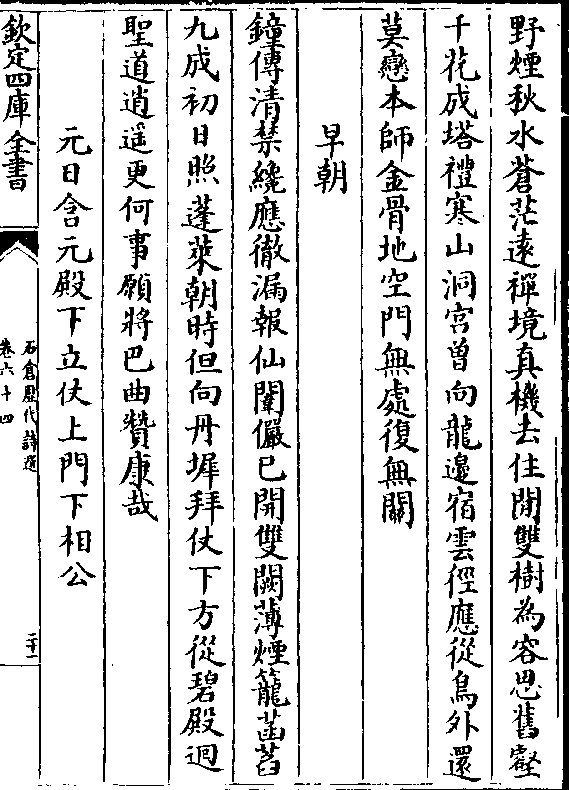 野煙秋水蒼茫遠禪境真機去住閒雙樹為容思舊壑
千花成塔禮寒山洞宮曾向龍邊宿雲徑應從鳥外還
莫戀本師金骨地空門無處復無關
早朝
鐘傳清禁纔應徹漏報仙闈儼已開雙闕薄煙籠菡萏
九成初日照蓬萊朝時但向丹墀拜仗下方從碧殿迴
聖道逍遥更何事願將巴曲贊康哉
元日含元殿下立仗上門下相公
欽定四庫全書
石倉歷代詩選
卷六十四
二十一